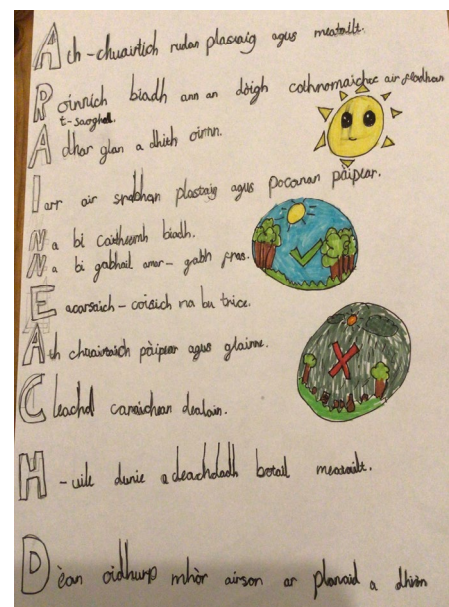 Ath-chuairtich rudan plastaig agus meatailt.
Roinnich biadh ann an dòigh cothromaichte air feadhan
t-saoghal.
Adhar glan a dhith oirnn.
Iarr air srabhan plastaig agus pocanan pàipear.
Na bi caitheamh biadh.
Na bi gabhail amar - gabh fras.
Eacarsaich - coisich na bu trice.
Ath chuairtaich pàipear agus glainne.
Cleachd carachean dealain.
H-uile dunie a cleachdadh botail meatailt.
Dèan oidhurp mhòr airson ar planaid a dhìon